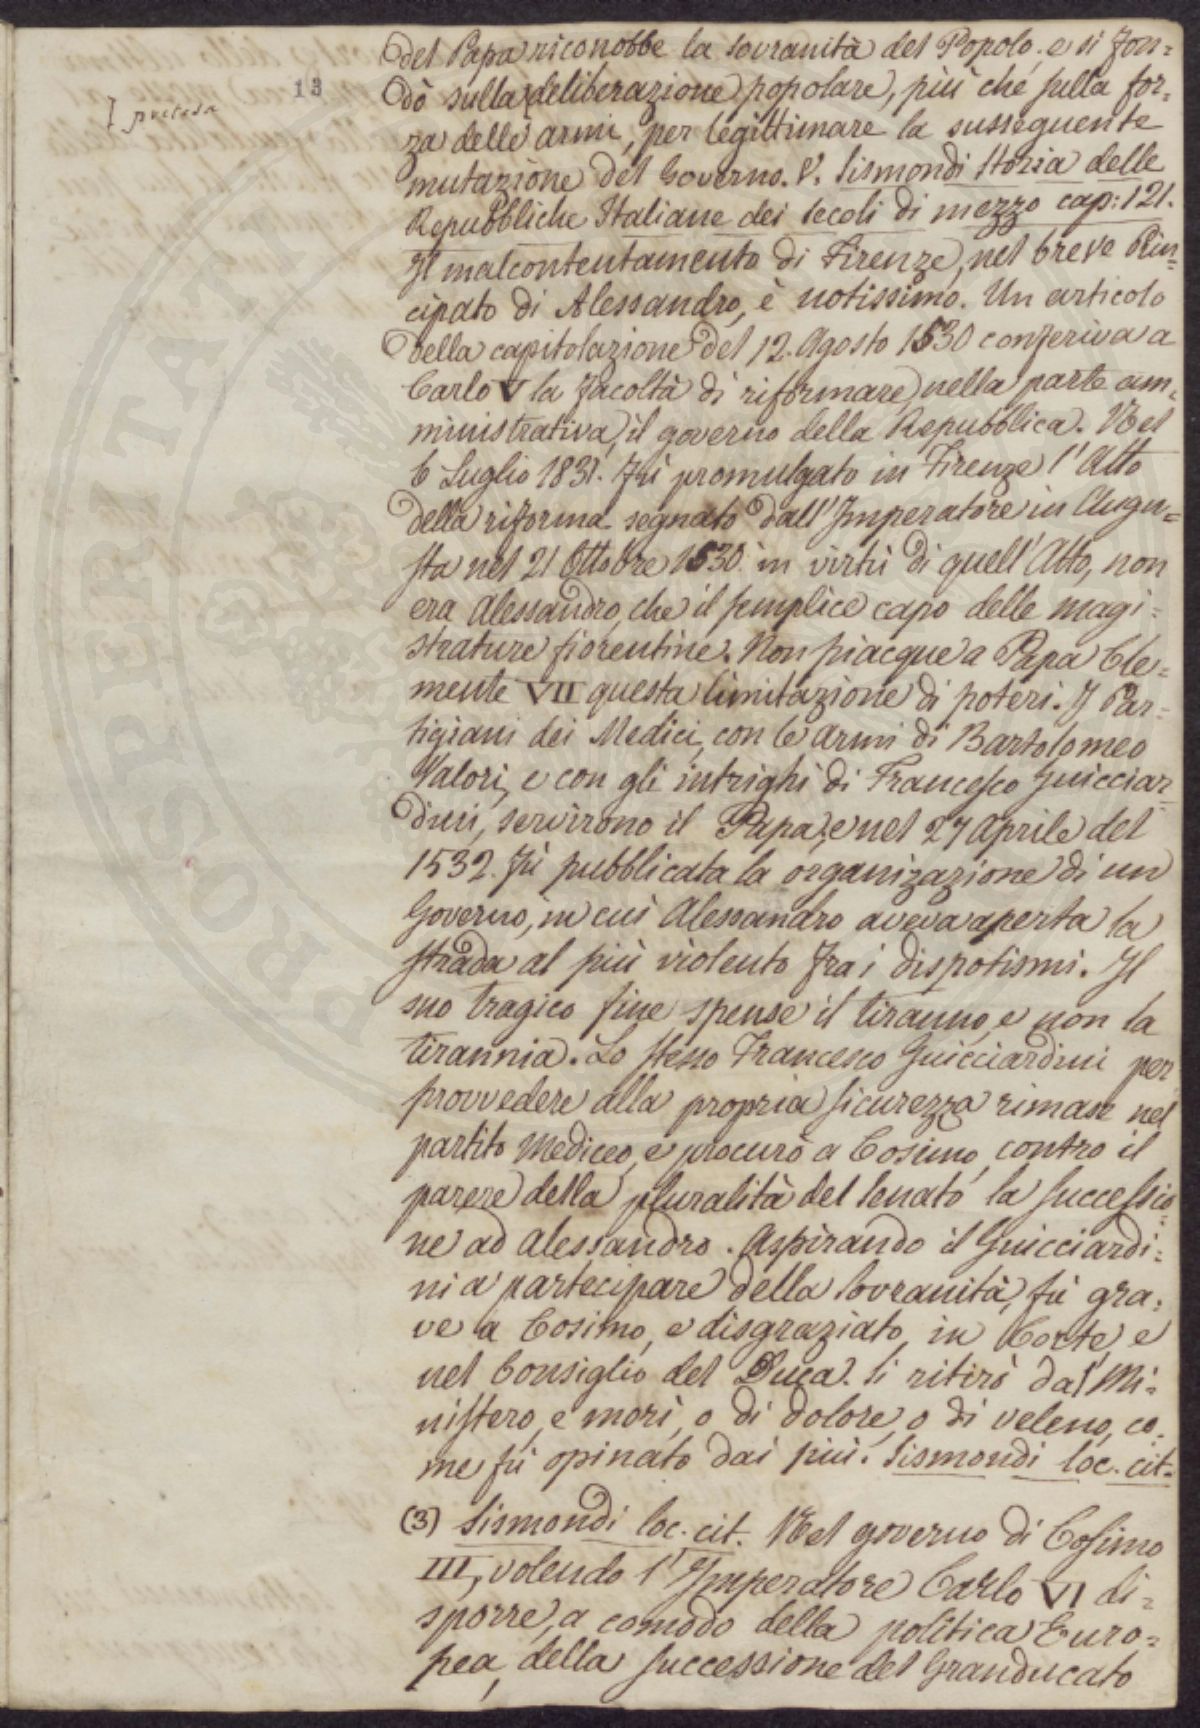 13
pretesa
del Papa riconobbe la sovranità del Popolo, e si fon=
dò sulla deliberazione popolare, più che sulla for=
za delle armi, per legittimare la susseguente
mutazione del Governo. V. Sismondi Storia delle
Repubbliche Italiane dei secoli di mezzo cap: 121.
Il malcontentamento di Firenze, nel breve Prin=
cipato di Alessandro, è notissimo. Un articolo
della capitolazione del 12. Agosto 1530 conferiva a
Carlo V la facoltà di riformare, nella parte am=
ministrativa, il governo della Repubblica. Nel
6 Luglio 1831. fù promulgato in Firenze l'Atto
della riforma segnato dall'Imperatore in Augu=
sta nel 21 Ottobre 1530. in virtù di quell'Atto, non
era Alessandro, che il semplice capo delle magi=
strature fiorentine. Non piacque a Papa Cle=
mente VII questa limitazione di poteri. I Par=
tigiani dei Medici, con le armi di Bartolomeo
Valori, e con gli intrighi di Francesco Guicciar=
dini, servirono il Papa, e nel 27 Aprile del
1532. fù pubblicata la organizazione di un
Governo, in cui Alessandro aveva aperta la
strada al più violento fra i dispotismi. Il
suo tragico fine spense il tiranno, e non la
tirannia. Lo stesso Francesco Guicciardini per
provvedere alla propria sicurezza rimase nel
partito Mediceo, e procurò a Cosimo, contro il
parere della pluralità del Senato, la successio=
ne ad Alessandro. Aspirando il Guicciardi=
ni a partecipare della sovranità, fù gra=
ve a Cosimo, e disgraziato in Corte, e
nel Consiglio del Duca. Si ritirò dal Mi=
nistero, e morì, o di dolore, o di veleno, co=
me fù opinato dai più. Sismondi loc. cit.
(3) Sismondi loc. cit. Nel governo di Cosimo
III, volendo l'Imperatore Carlo VI di=
sporre, a comodo della politica Euro=
pea, della successione del Granducato
PROSPERITATI